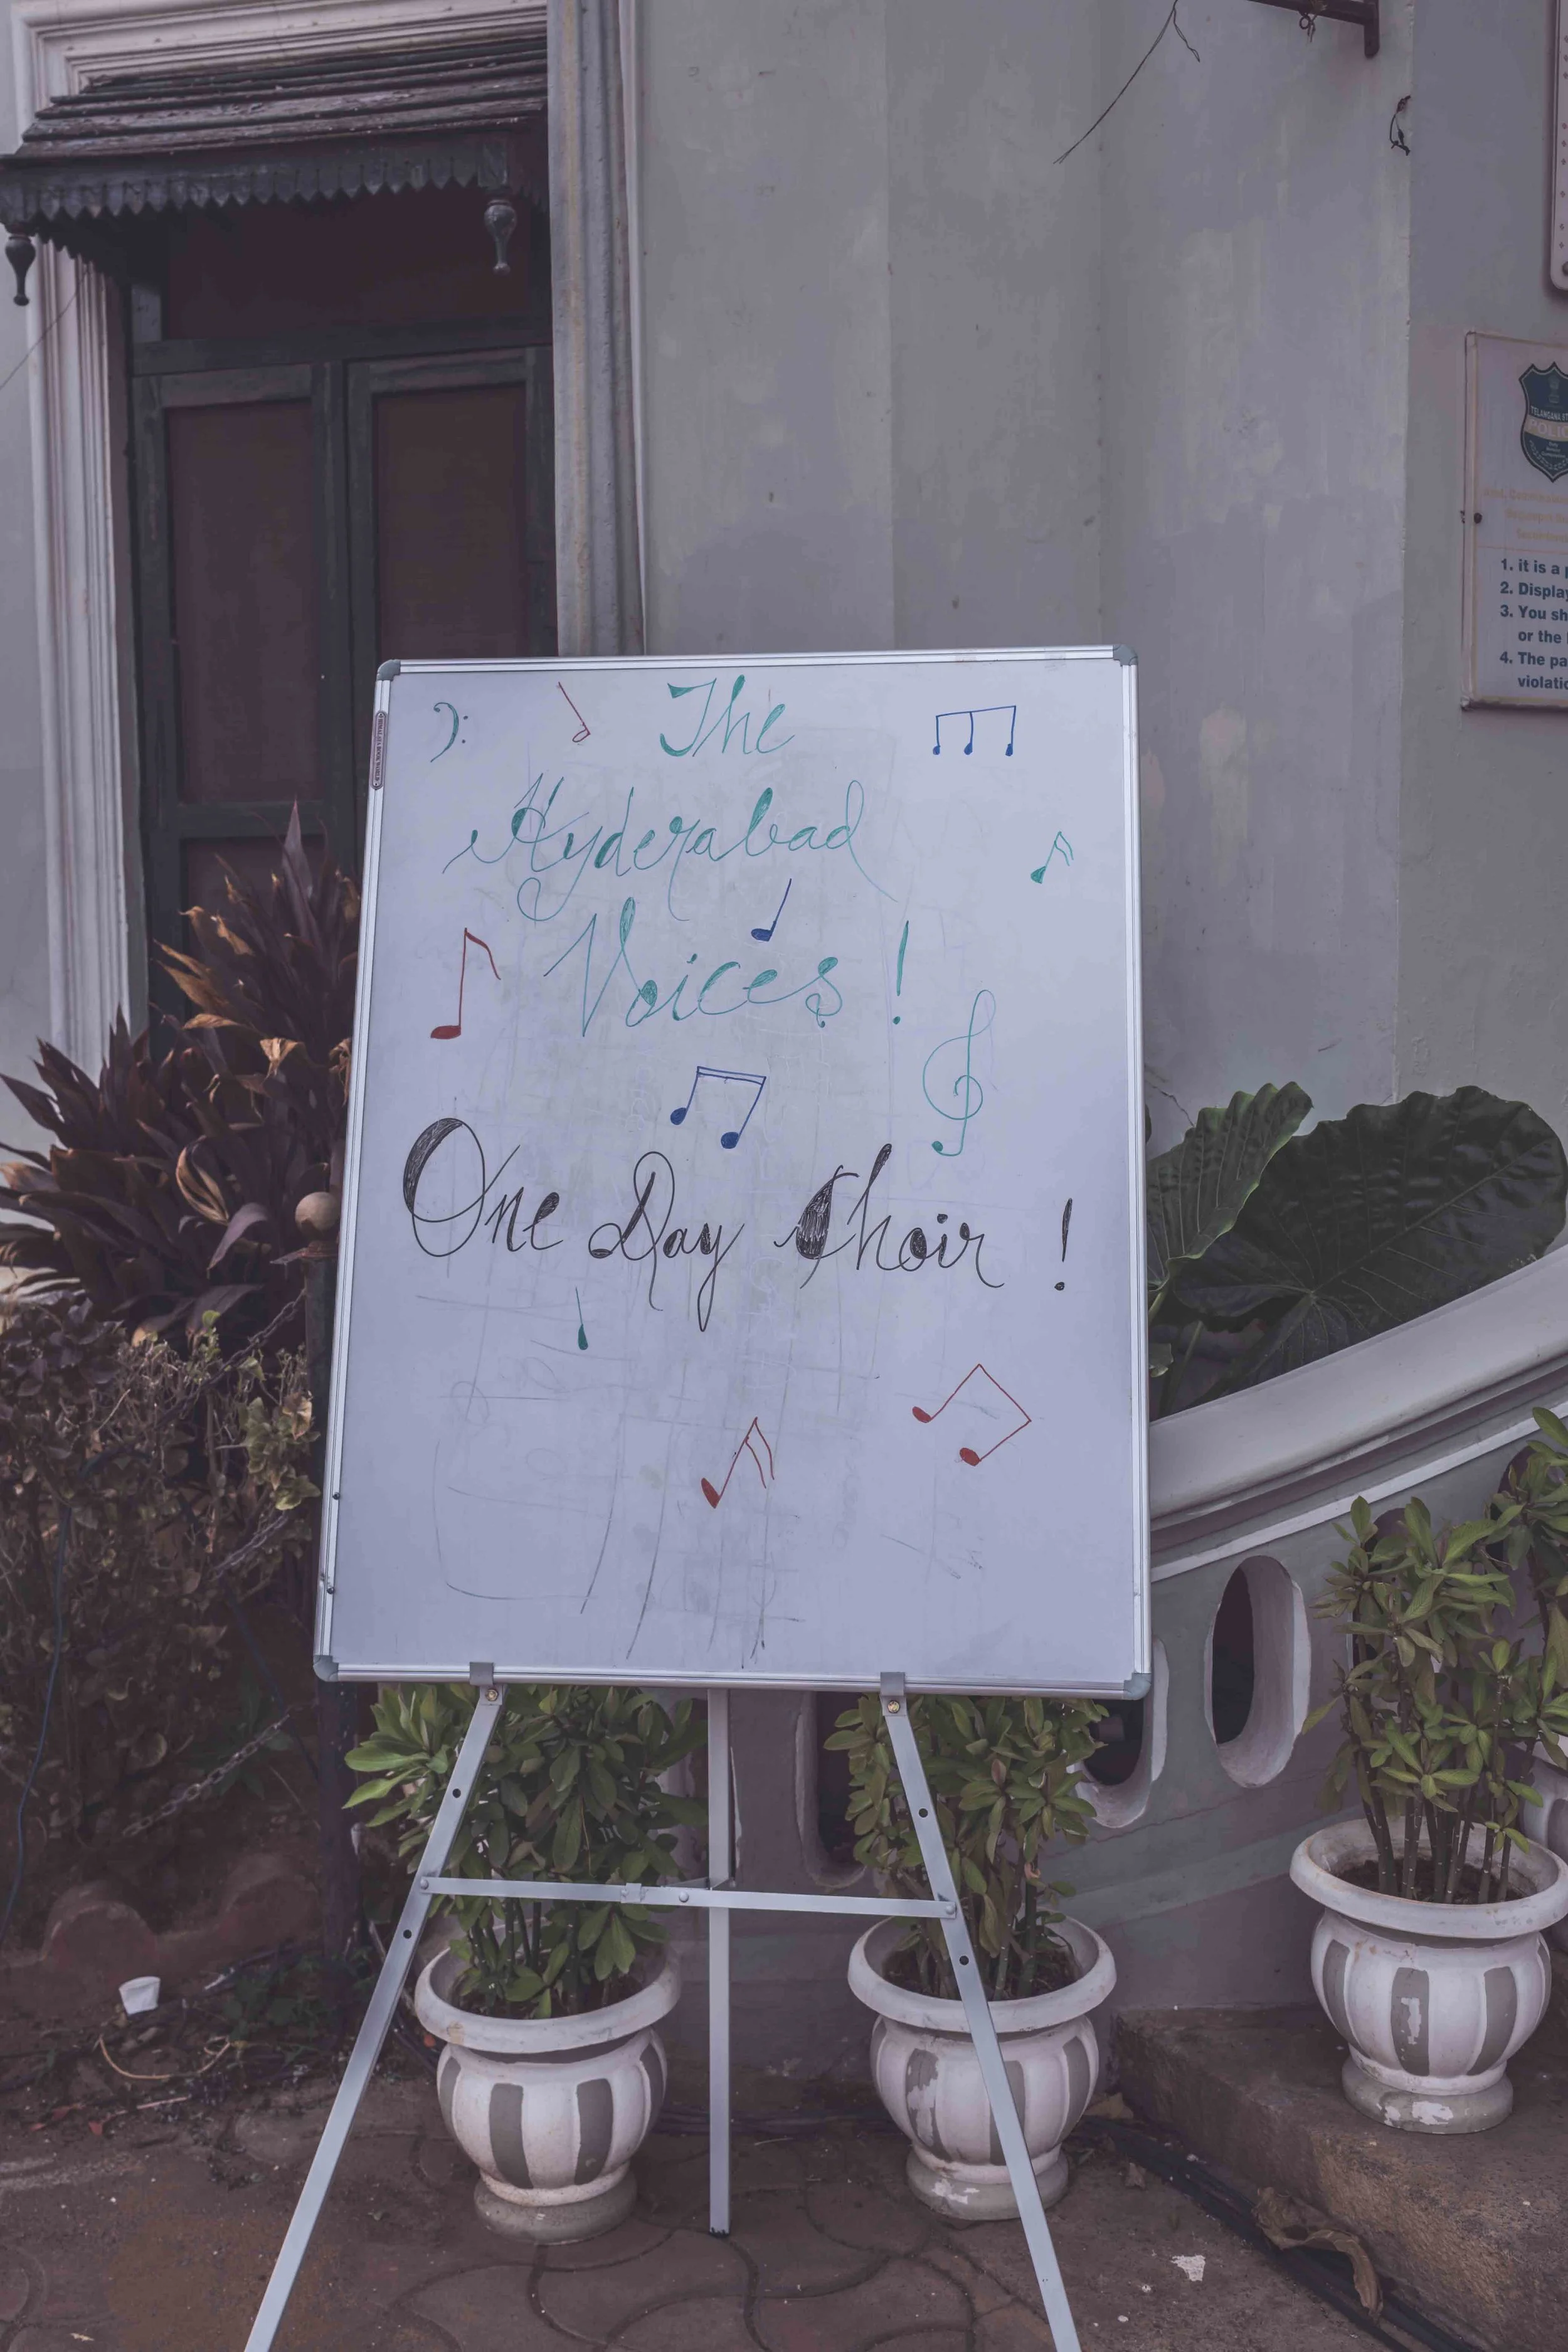 The
Hyderabad
Voices!
One Day Choir!
TELANGANA
POLIC
1. it is a
2. Display
3. You sh
or the
4. The pa
violatio